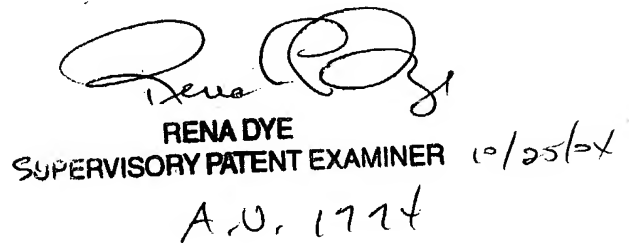 Rena Dye
RENA DYE
SUPERVISORY PATENT EXAMINER 10/25/04
A.U. 1774